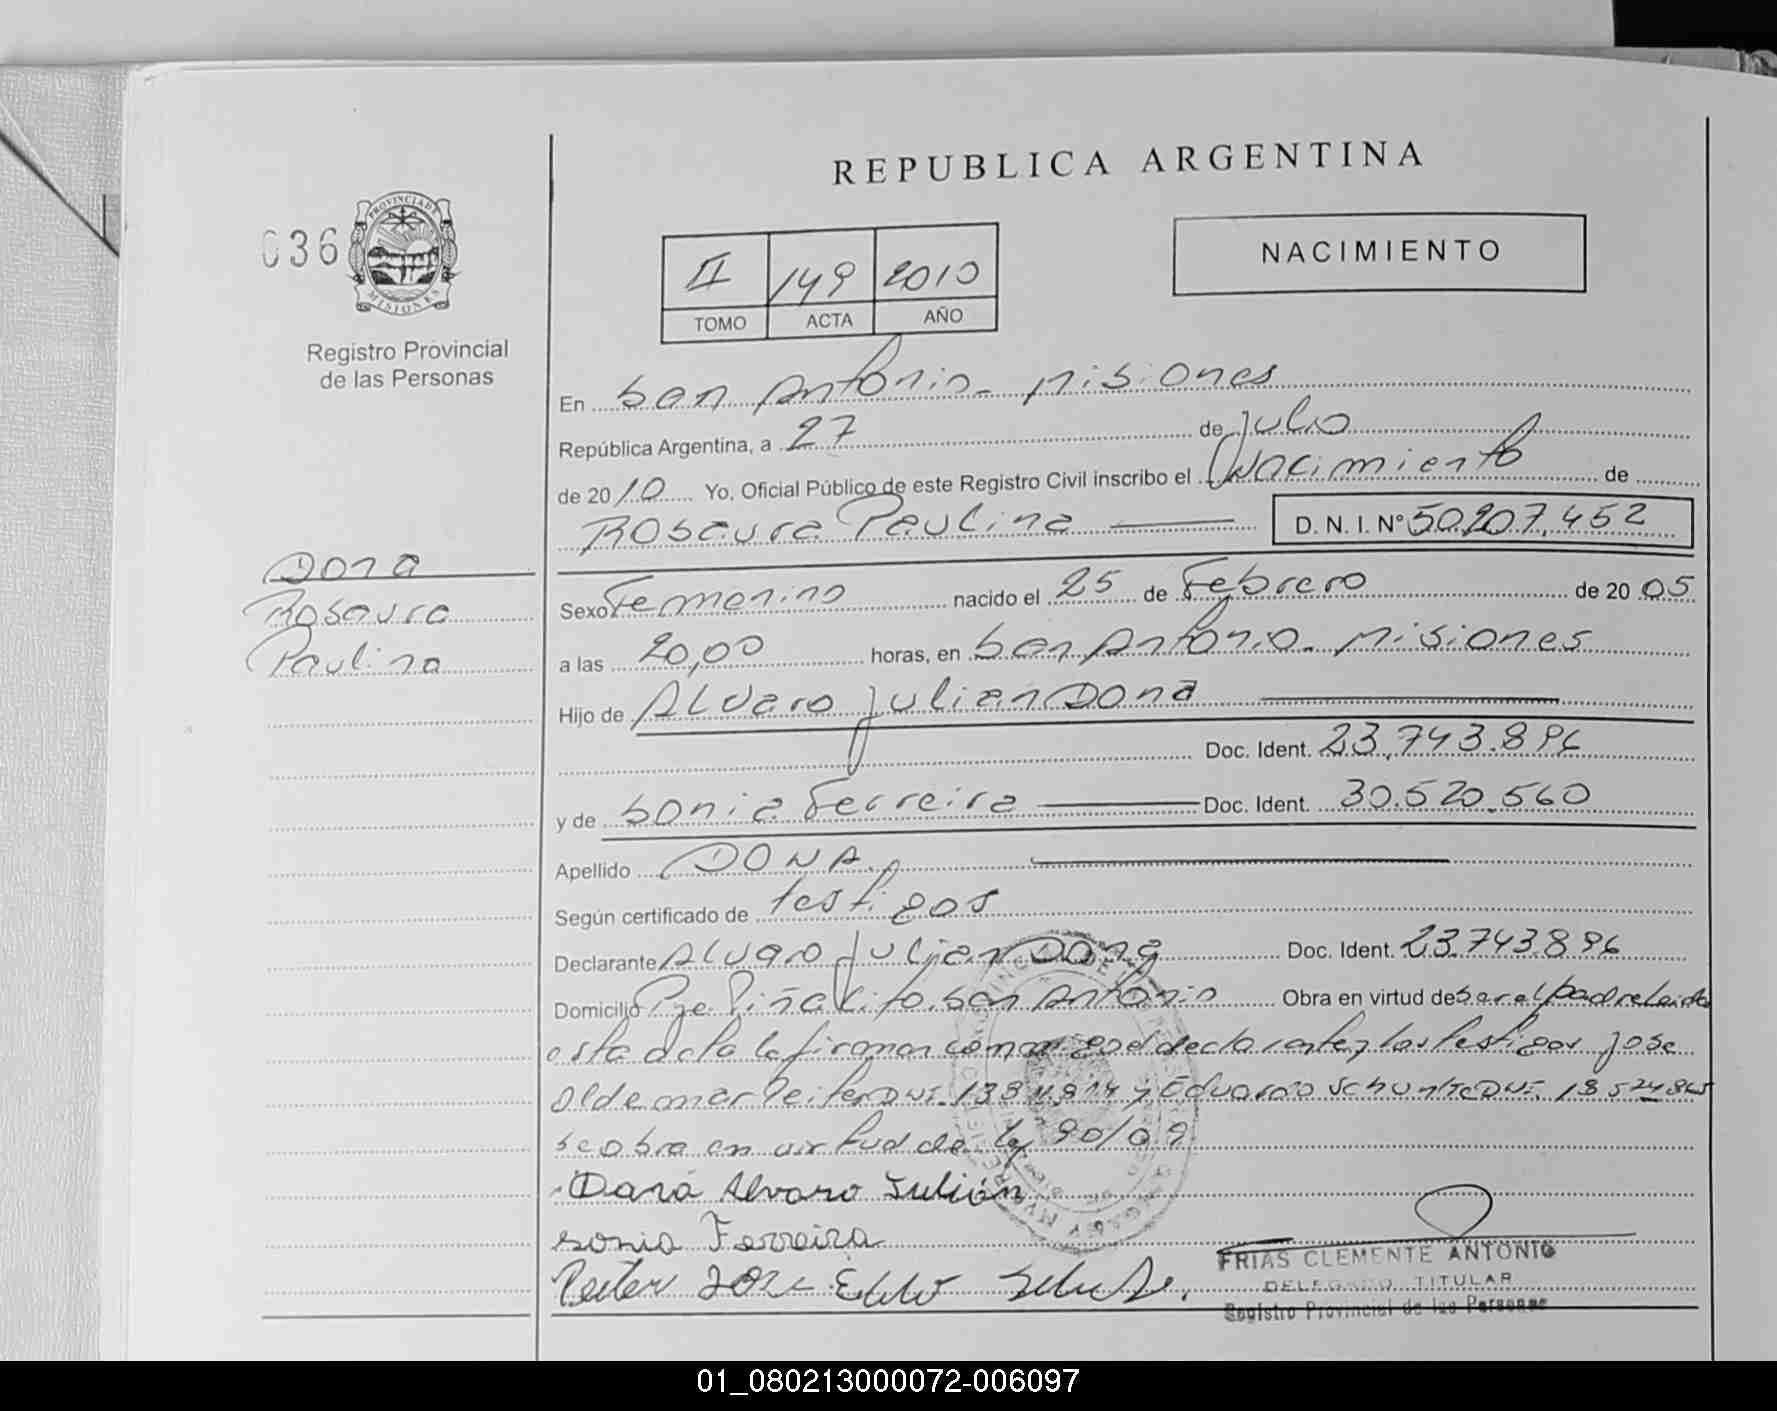 REPUBLICA ARGENTINA
036
PROVINCIA DE
MISIONES
Registro Provincial
de las Personas
II 149 2010
TOMO ACTA AÑO
NACIMIENTO
En San Antonio - Misiones
República Argentina, a 27 de Julio
de 2010 Yo. Oficial Público de este Registro Civil inscribo el Nacimiento de
Rosaura Paulina D. N. I. Nº 50.207.452
Dona
Rosaura
Paulina
Sexo Femenino nacido el 25 de Febrero de 2005
a las 20,00 horas, en San Antonio - Misiones
Hijo de Alvaro Julian Dona
Doc. Ident. 23.743.896
y de Sonia Ferreira Doc. Ident. 30.520.560
Apellido DONA.
Según certificado de testigos
Declarante Alvaro Julian Dona Doc. Ident. 23.743.896
Domicilio Pje Piñalito. San Antonio Obra en virtud de ser el padre leida
esta acta la firman conmigo el declarante y los testigos Jose
Oldemar Peiter DNI. y Eduardo DNI. 18524865
se obra en virtud de ley 90/09
Dana Alvaro Julián
Sonia Ferreira
Peiter Jose
FRIAS CLEMENTE ANTONIO
DELEGADO TITULAR
Registro Provincial de las Personas
01_080213000072-006097